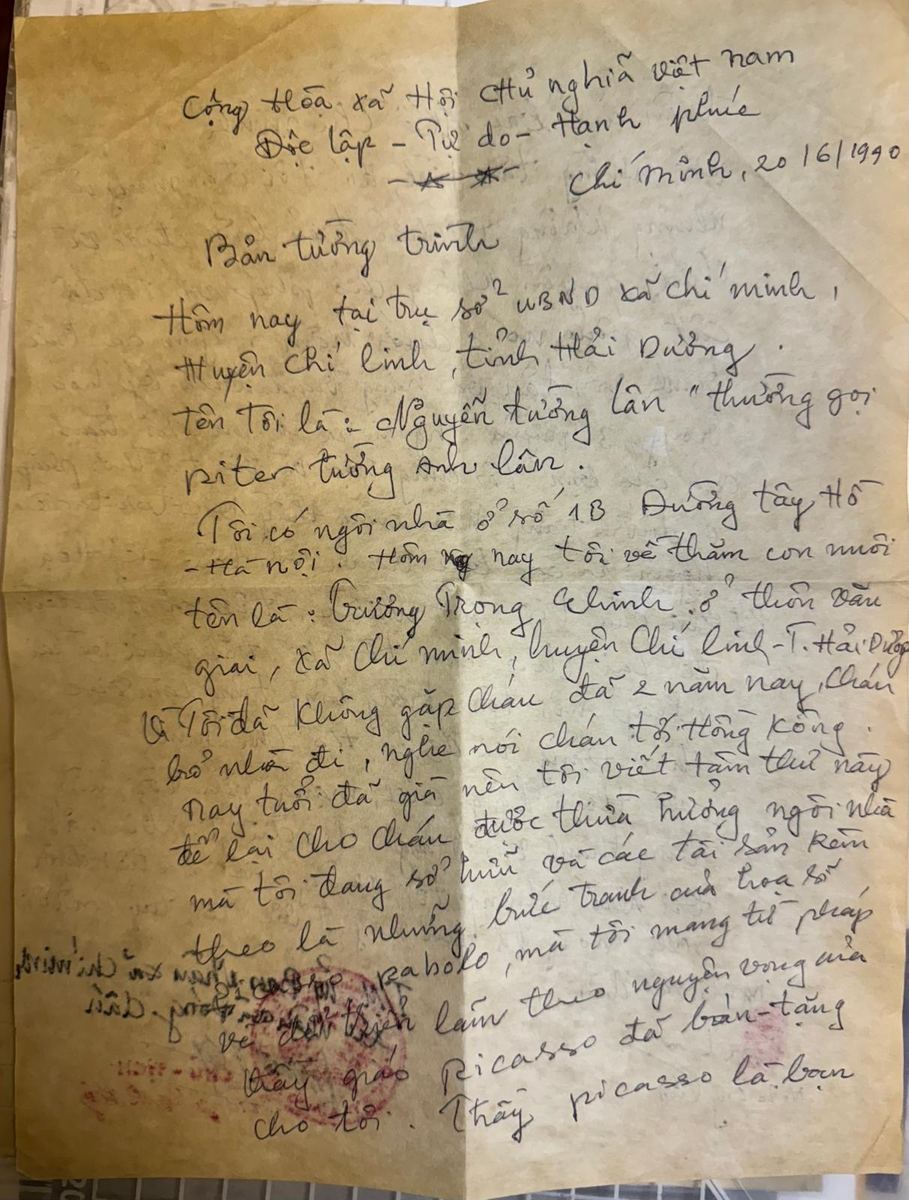 Cộng Hòa xã Hội chủ nghĩa việt nam
Độc lập - Tự do - Hạnh phúc
Chí minh, 20/6/1990
Bản tường trình
Hôm nay tại trụ sở UBND xã chí minh,
Huyện Chí linh, tỉnh Hải Dương.
tên tôi là: Nguyễn tường lân "thường gọi
piter tường Anh lân.
Tôi có ngôi nhà ở số 1B Đường tây Hồ
- Hà nội. Hôm nay tôi về thăm con nuôi
tên là: Trương Trọng Chinh ở thôn văn
giai, xã chí minh, huyện Chí linh - T. Hải Dương
Vì Tôi đã không gặp cháu đã 2 năm nay, cháu
bỏ nhà đi, nghe nói cháu tới Hồng Kông.
nay tuổi đã già nên tôi viết tâm thư này
để lại cho cháu được thừa hưởng ngôi nhà
mà tôi đang sở hữu và các tài sản kèm
theo là những bức tranh của họa sĩ
pabolo, mà tôi mang từ pháp
về làm theo nguyện vọng của
thầy giáo Picasso đã bán - tặng
cho tôi. Thầy picasso là bạn